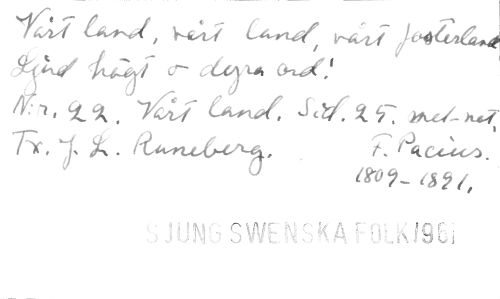 Vårt land, vårt land, vårt fosterland
Ljud högt o dyra ord!
N:r. 22. Vårt land. Sid. 25. met-not.
Tx. J. L. Runeberg. F. Pacius.
1809-1891.
SJUNG SWENSKA FOLK 1961